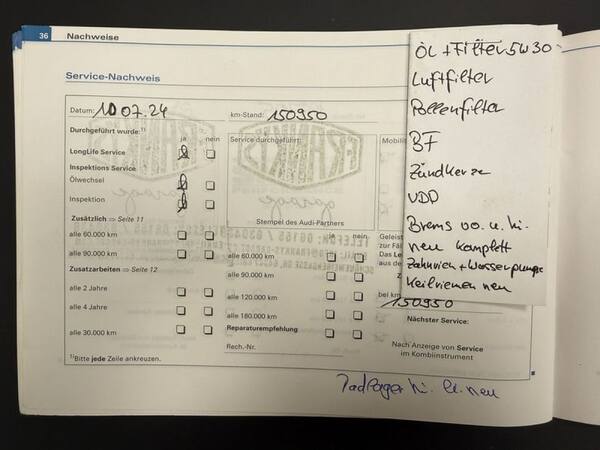 36 Nachweise
Service-Nachweis
Datum: 10 07.24 km-Stand: 150950
Durchgeführt wurde:¹⁾ ja nein
Service durchgeführt:
LongLife Service
Inspektions Service
Ölwechsel
Inspektion
Stempel des Audi-Partners
Zusätzlich ⇒ Seite 11 ja nein
alle 60.000 km
alle 90.000 km
Zusatzarbeiten ⇒ Seite 12
alle 2 Jahre
alle 4 Jahre
alle 30.000 km
alle 60.000 km
alle 90.000 km
alle 120.000 km
alle 180.000 km
Reparaturempfehlung
Rech.-Nr.
¹⁾Bitte jede Zeile ankreuzen.
Mobilit
Geleist
zur Fäl
Das Le
aus de
bei km
150950
Nächster Service:
Nach Anzeige von Service
im Kombiinstrument
ÖL + Filter 5W30
Luftfilter
Pollenfilter
BF
Zündkerze
VDD
Brems vo. u. hi.
neu komplett
Zahnrien + Wasserpumpe
Keilriemen neu
Radlager hi. li. neu
FRANKYS
garage